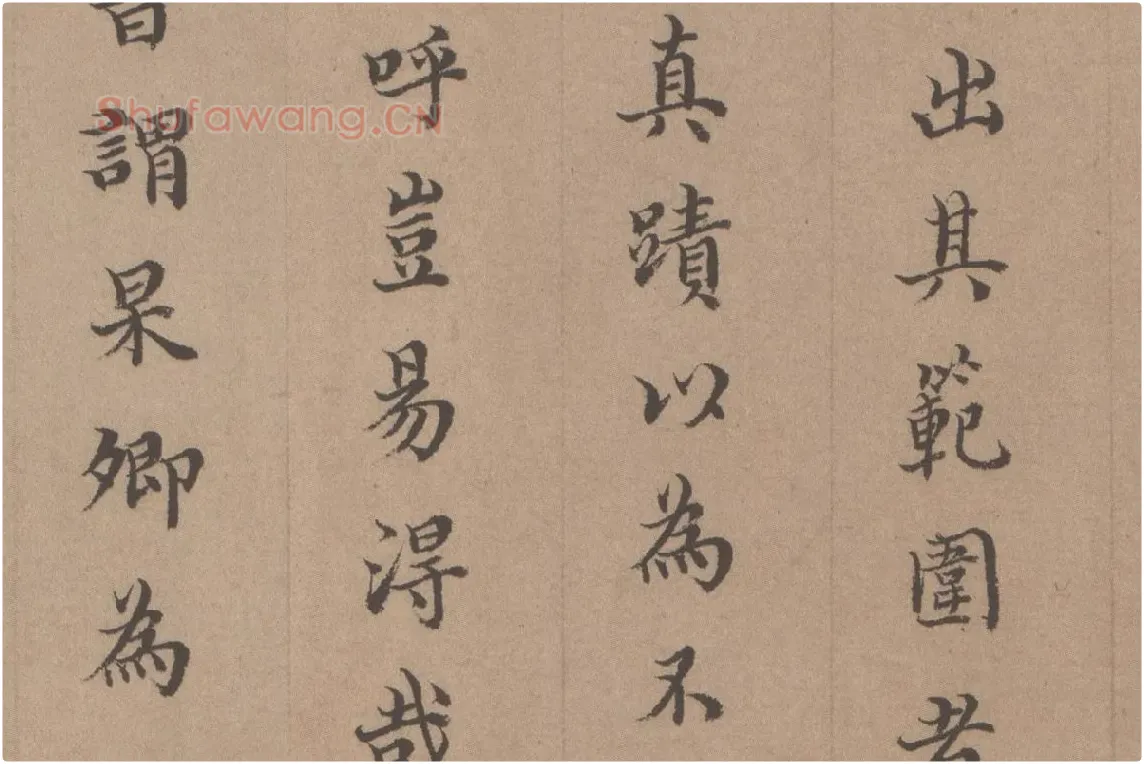 出其範圍者
真蹟以為不
呼豈易得哉
謂杲卿為
Shufawang.CN